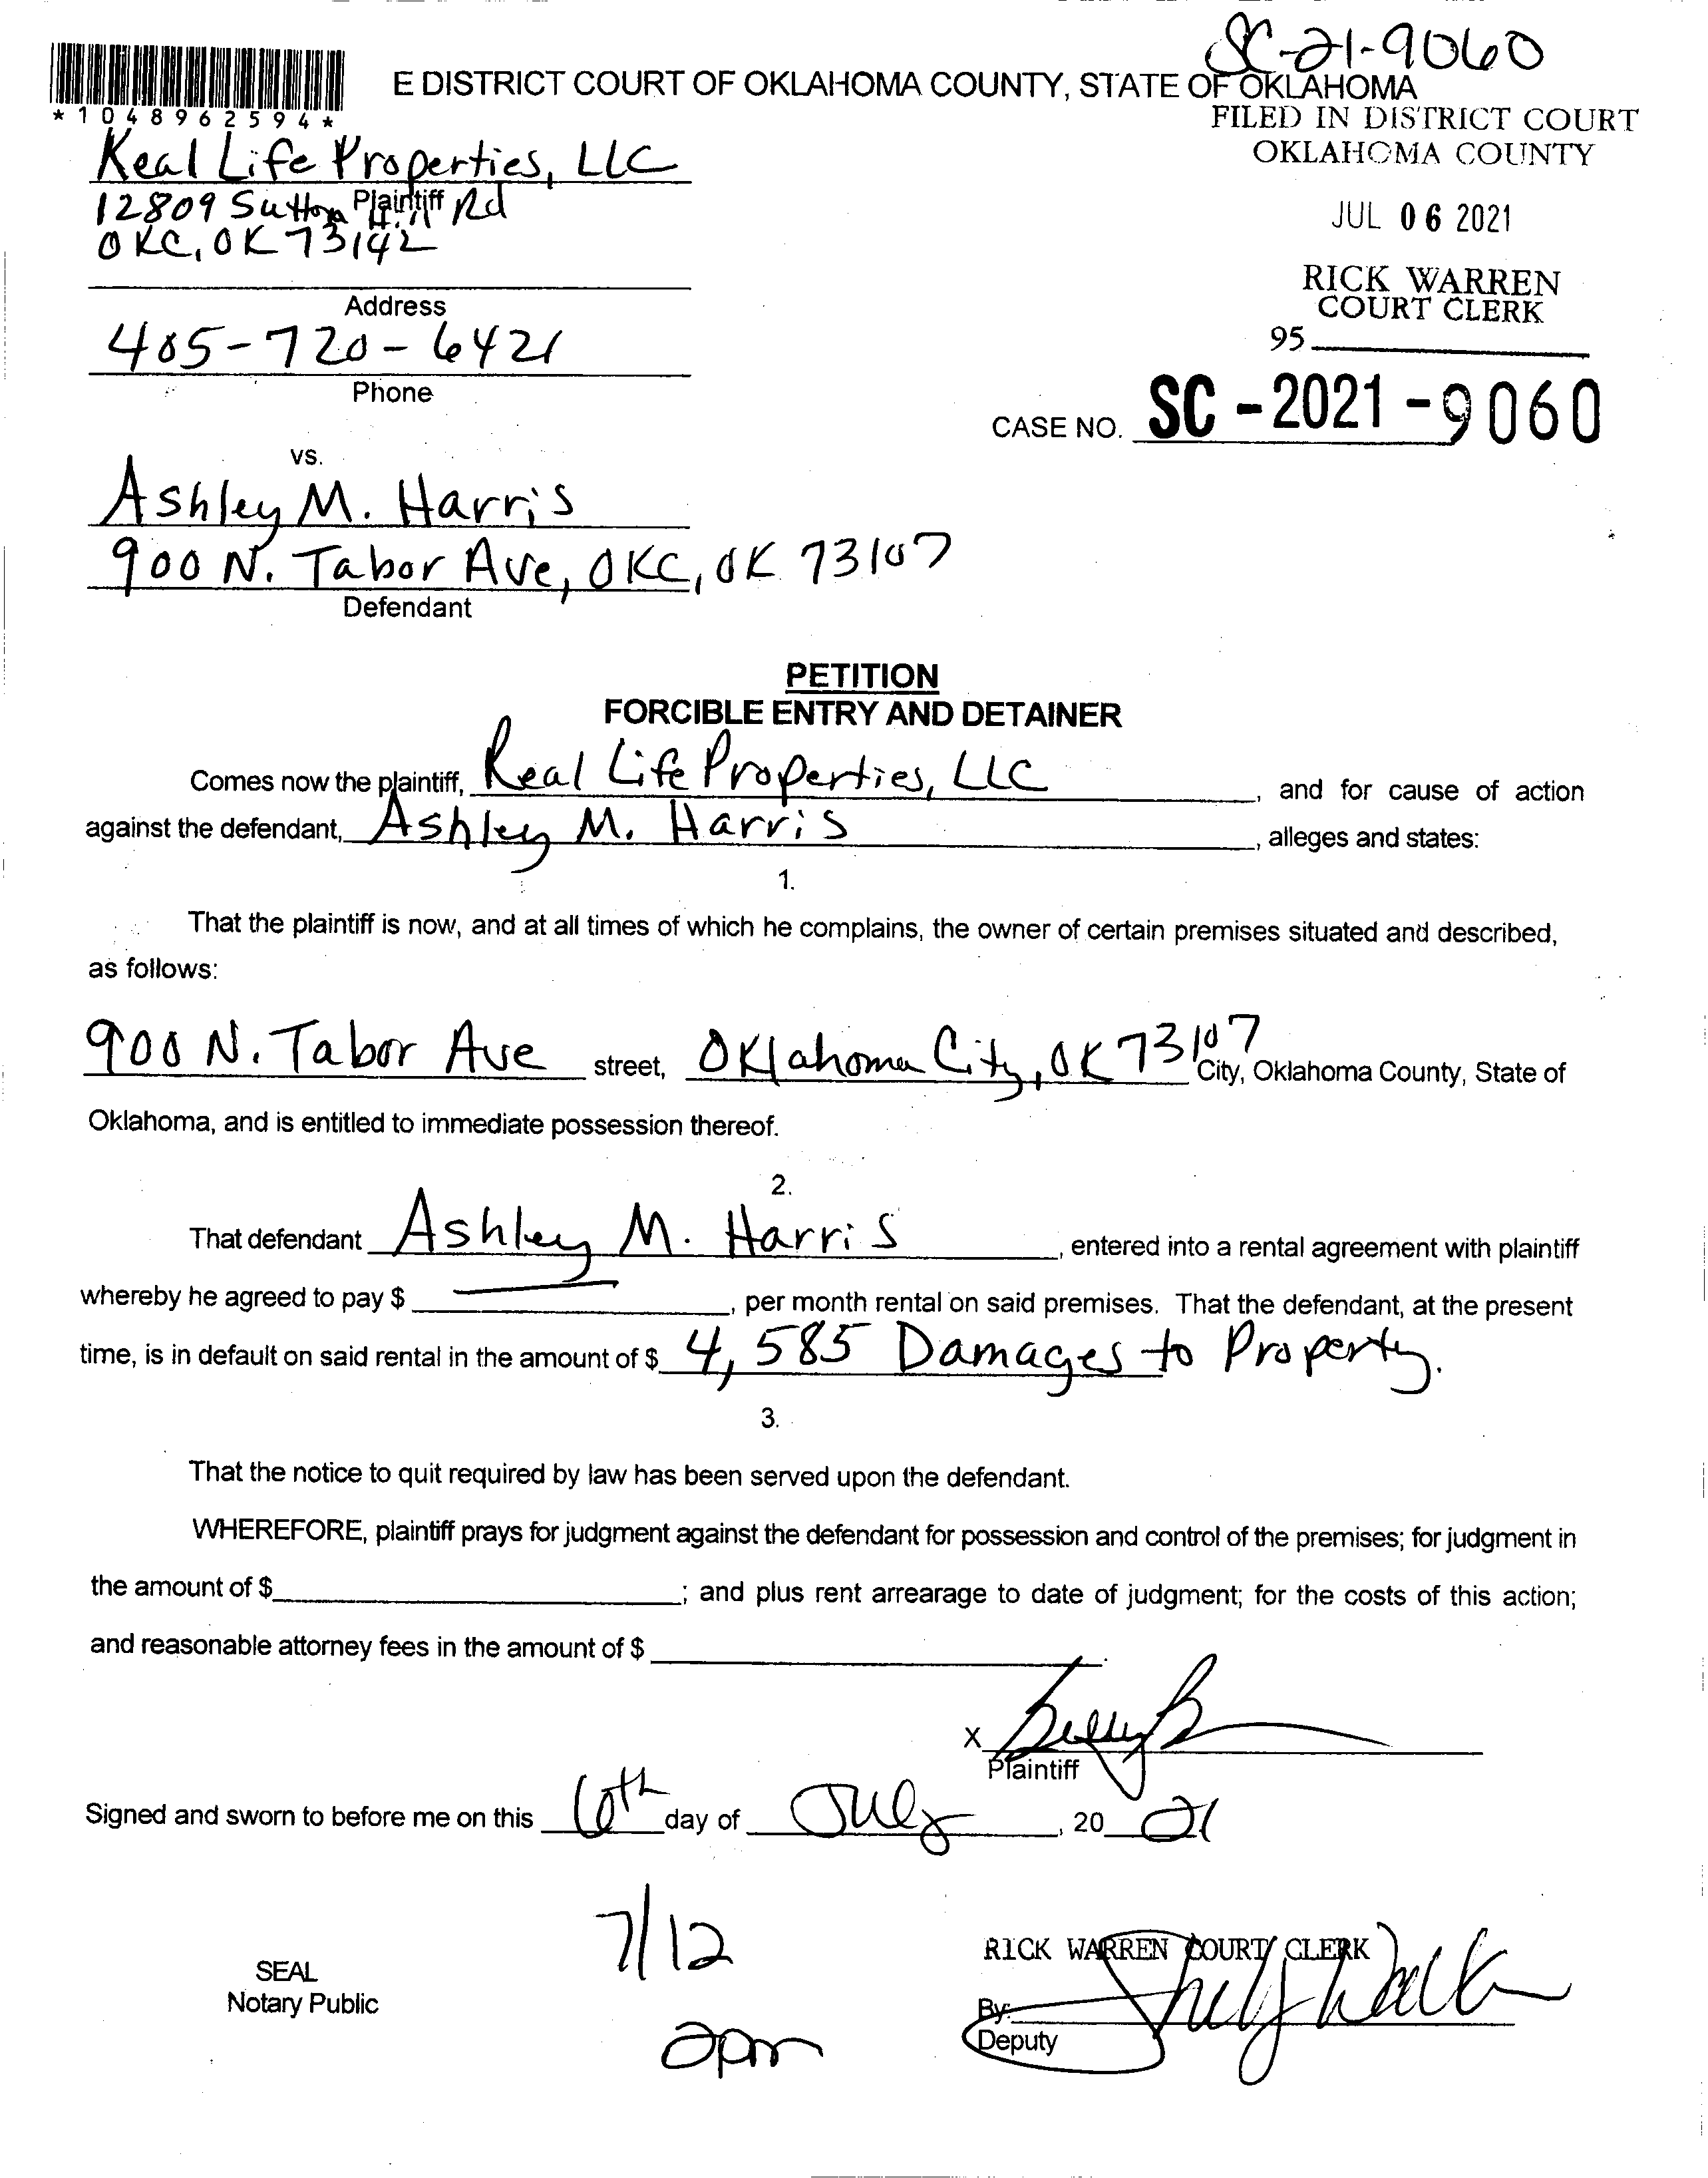 SC-21-9060
E DISTRICT COURT OF OKLAHOMA COUNTY, STATE OF OKLAHOMA
*1048962594*
FILED IN DISTRICT COURT
OKLAHOMA COUNTY
Real Life Properties, LLC
Plaintiff
12809 Sutton Hill Rd
OKC, OK 73142
JUL 06 2021
RICK WARREN
COURT CLERK
Address
95
405-720-6421
Phone
CASE NO. SC-2021-9060
vs.
Ashley M. Harris
900 N. Tabor Ave, OKC, OK 73107
Defendant
PETITION
FORCIBLE ENTRY AND DETAINER
Comes now the plaintiff, Real Life Properties, LLC, and for cause of action
against the defendant, Ashley M. Harris, alleges and states:
1.
That the plaintiff is now, and at all times of which he complains, the owner of certain premises situated and described,
as follows:
900 N. Tabor Ave street, Oklahoma City, OK 73107 City, Oklahoma County, State of
Oklahoma, and is entitled to immediate possession thereof.
2.
That defendant Ashley M. Harris, entered into a rental agreement with plaintiff
whereby he agreed to pay $ —, per month rental on said premises. That the defendant, at the present
time, is in default on said rental in the amount of $ 4,585 Damages to Property.
3.
That the notice to quit required by law has been served upon the defendant.
WHEREFORE, plaintiff prays for judgment against the defendant for possession and control of the premises; for judgment in
the amount of $ ; and plus rent arrearage to date of judgment; for the costs of this action;
and reasonable attorney fees in the amount of $ .
X
Plaintiff
Signed and sworn to before me on this 6th day of July, 20 21
7/12
2pm
SEAL
Notary Public
RICK WARREN COURT CLERK
By:
Deputy